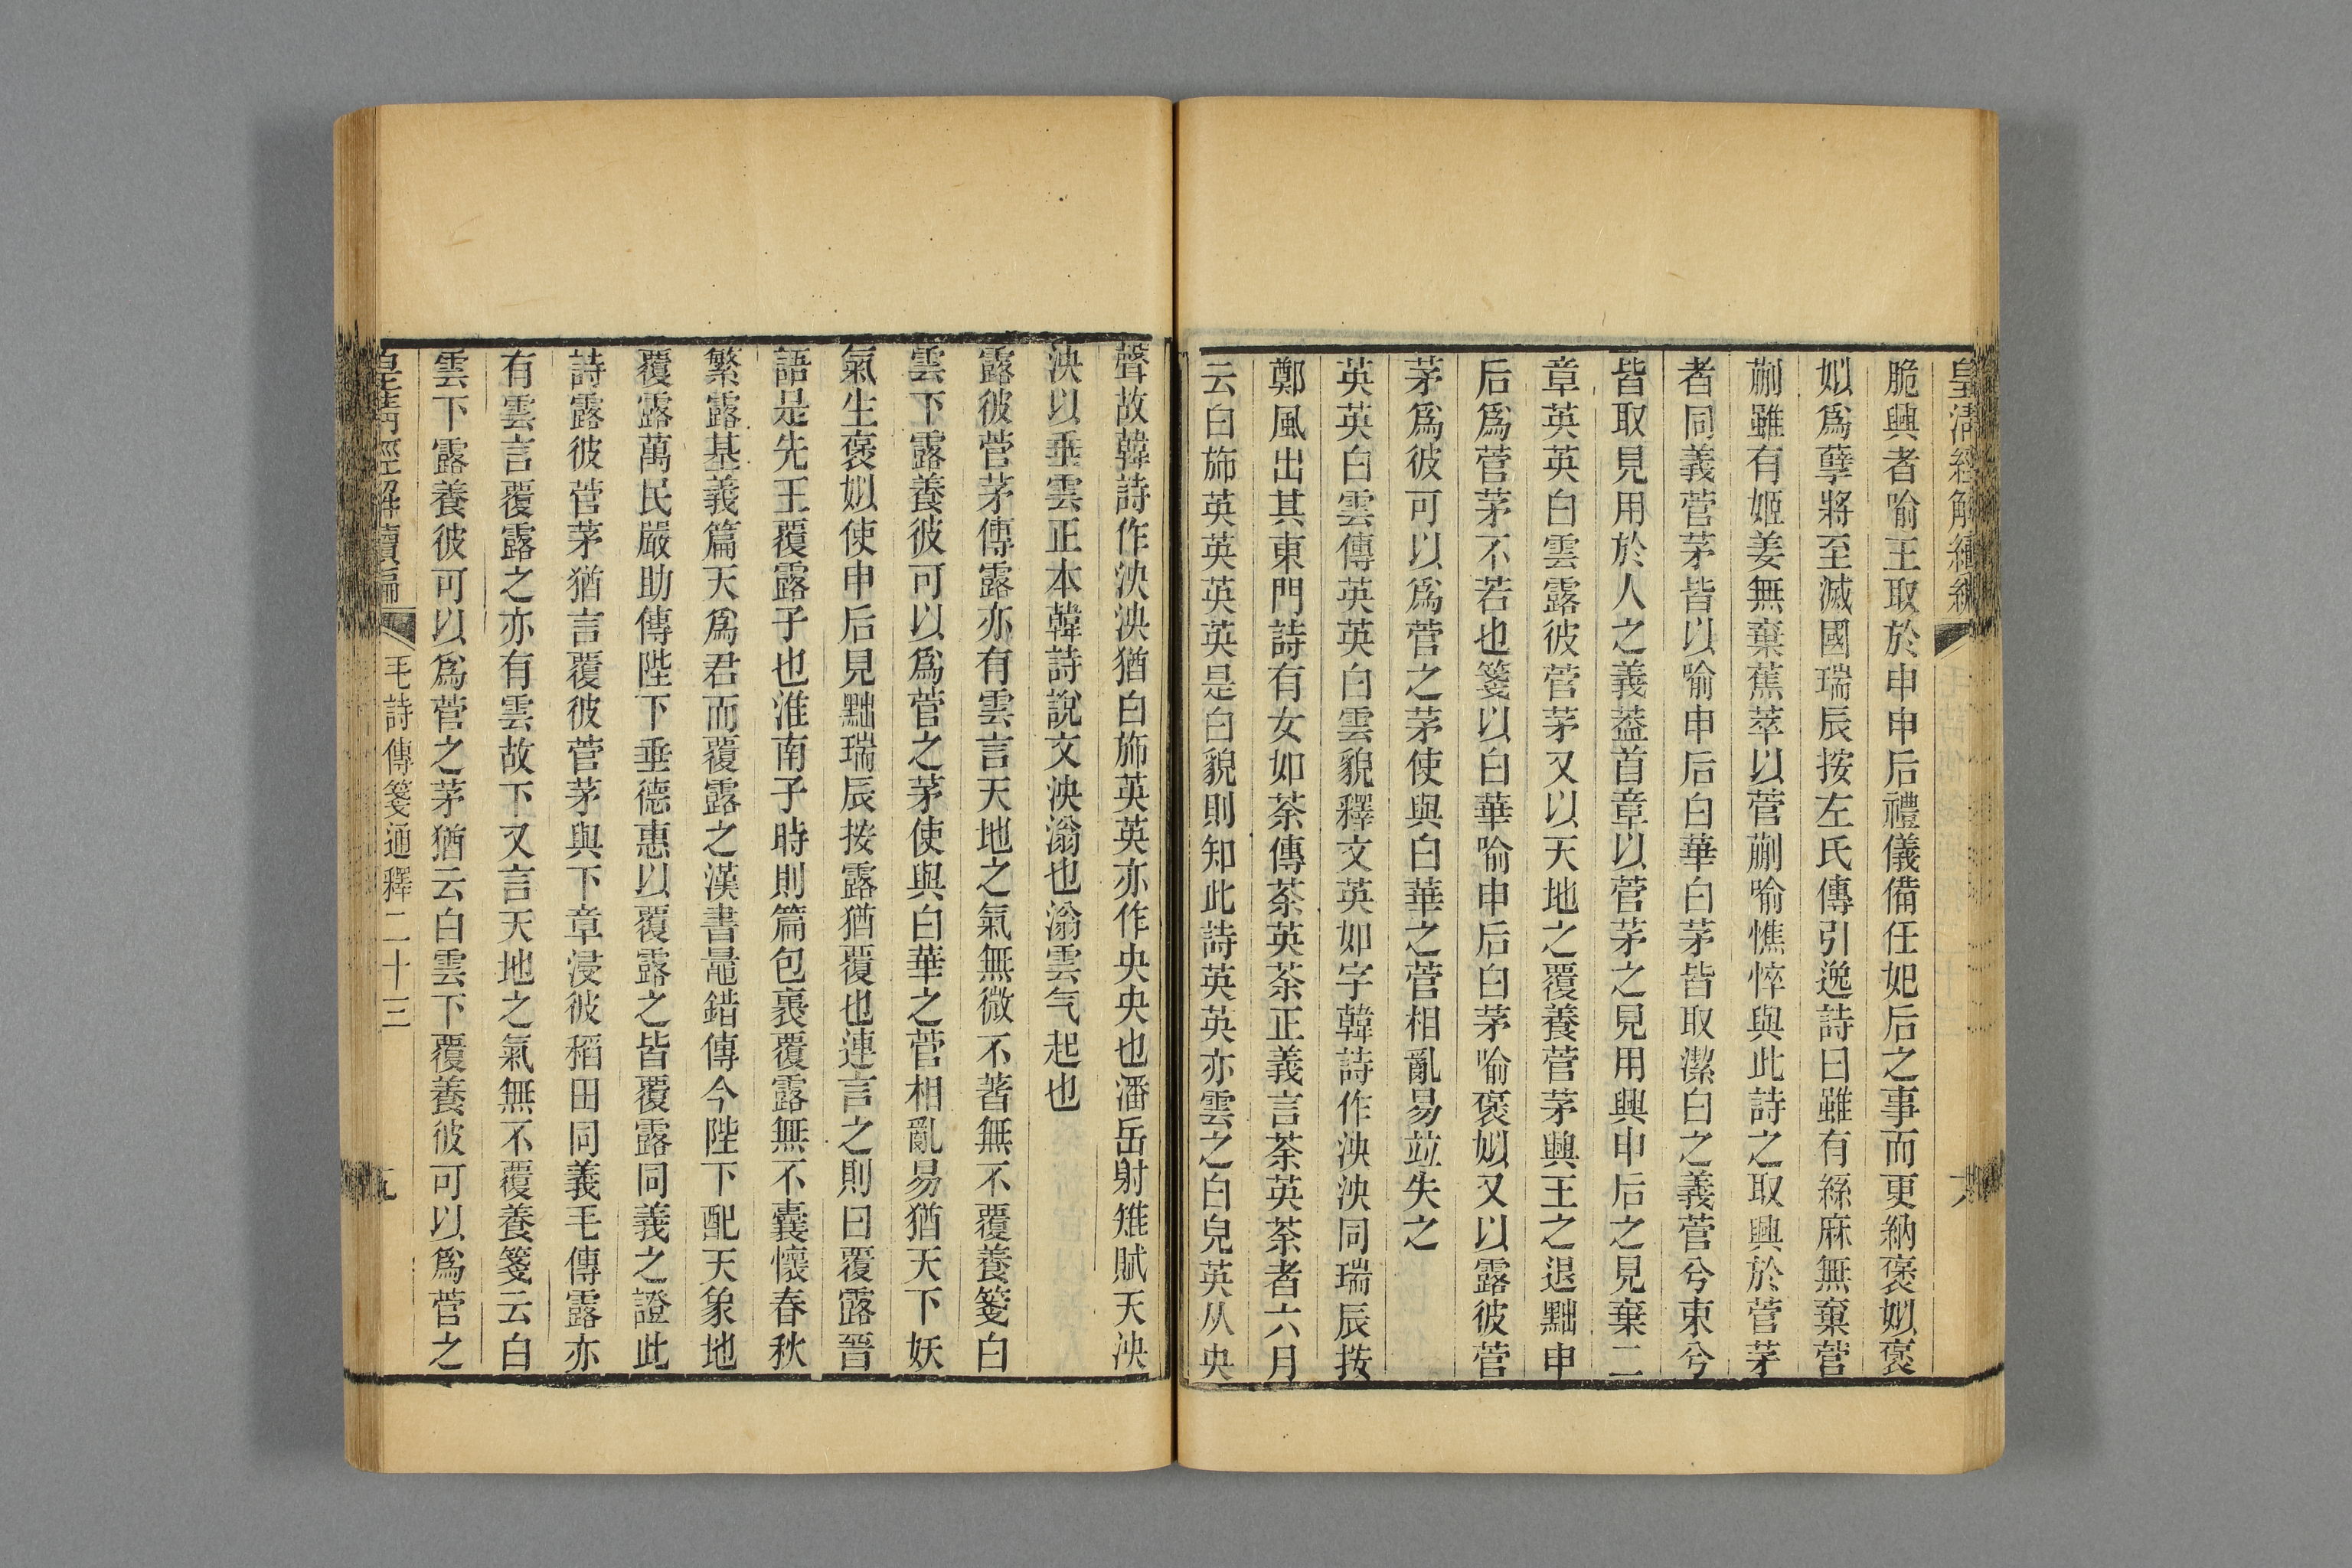 皇清經解續編
脆興者喻王取於申申后禮儀備任妃后之事而更納褒姒褒
姒爲孽將至滅國瑞辰按左氏傳引逸詩曰雖有絲麻無棄菅
蒯雖有姬姜無棄蕉萃以菅蒯喻憔悴與此詩之取興於菅茅
者同義菅茅皆以喻申后白華白茅皆取潔白之義菅兮束兮
皆取見用於人之義葢首章以菅茅之見用興申后之見棄二
章英英白雲露彼菅茅又以天地之覆養菅茅興王之退黜申
后爲菅茅不若也箋以白華喻申后白茅喻褒姒又以露彼菅
茅爲彼可以爲菅之茅使與白華之菅相亂易竝失之
英英白雲傳英英白雲貌釋文英如字韓詩作泱泱同瑞辰按
鄭風出其東門詩有女如荼傳荼英荼正義言荼英荼者六月
云白斾英英英英是白貌則知此詩英英亦雲之白皃英从央
聲故韓詩作泱泱猶白斾英英亦作央央也潘岳射雉賦天泱
泱以垂雲正本韓詩說文泱滃也滃雲气起也
露彼菅茅傳露亦有雲言天地之氣無微不著無不覆養箋白
雲下露養彼可以爲菅之茅使與白華之菅相亂易猶天下妖
氣生褒姒使申后見黜瑞辰按露猶覆也連言之則曰覆露晉
語是先王覆露子也淮南子時則篇包裹覆露無不囊懷春秋
繁露基義篇天爲君而覆露之漢書鼂錯傳今陛下配天象地
覆露萬民嚴助傳陛下垂德惠以覆露之皆覆露同義之證此
詩露彼菅茅猶言覆彼菅茅與下章浸彼稻田同義毛傳露亦
有雲言覆露之亦有雲故下又言天地之氣無不覆養箋云白
雲下露養彼可以爲菅之茅猶云白雲下覆養彼可以爲菅之
皇清經解續編 毛詩傳箋通釋二十三 九